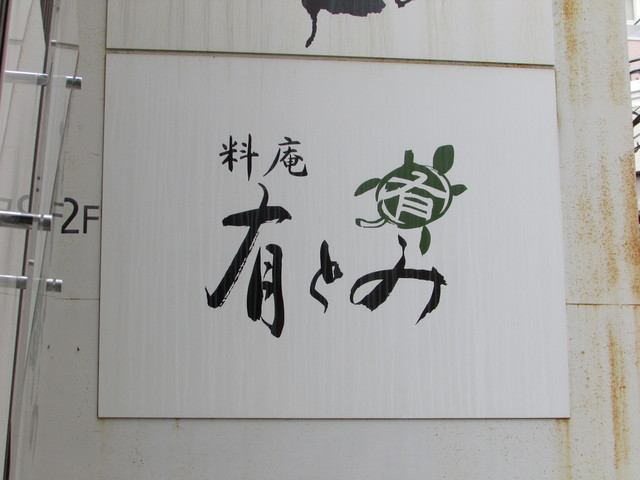 料庵
肴
有とみ
2F